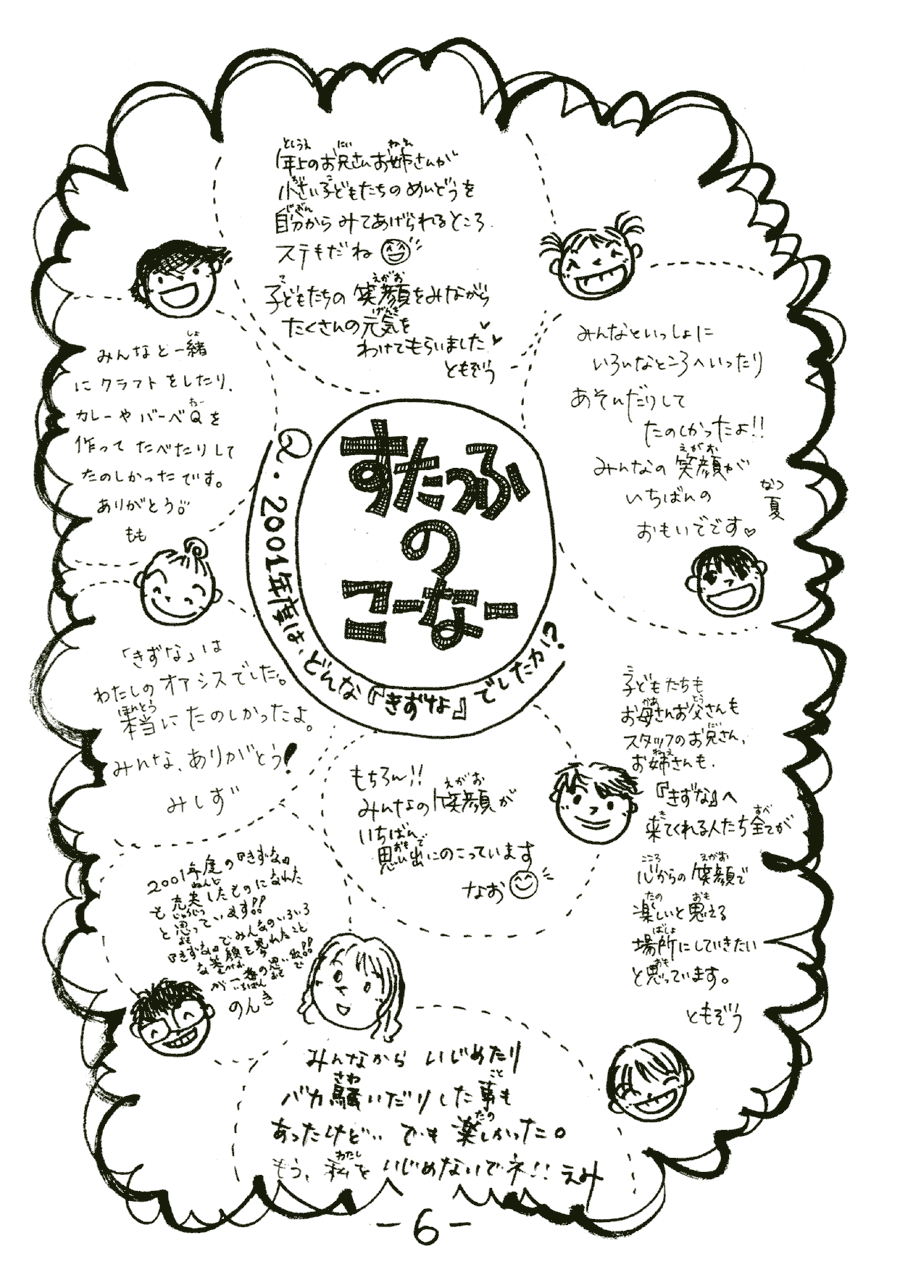 すたっふ
の
こーなー
Q. 2001年度は、どんな『きずな』でしたか!?
年上のお兄さんお姉さんが
小さい子どもたちのめんどうを
自分からみてあげられるところ。
ステキだね
子どもたちの笑顔をみながら
たくさんの元気を
わけてもらいました♥
ともぞう
みんなといっしょに
いろいろなところへいったり
あそんだりして
たのしかったよ!!
みんなの笑顔が
いちばんの
おもいでです♡
夏
みんなと一緒
にクラフトをしたり、
カレーやバーベQを
作ってたべたりして
たのしかったです。
ありがとう。
もも
「きずな」は
わたしのオアシスでした。
本当にたのしかったよ。
みんな、ありがとう!
みしず
もちろん!!
みんなの笑顔が
いちばん
思い出にのこっています
なお
子どもたちも
お母さんお父さんも
スタッフのお兄さん、
お姉さんも、
『きずな』へ
来てくれる人たち全てが
心からの笑顔で
楽しいと思える
場所にしていきたい
と思っています。
ともぞう
2001年度の『きずな』
も充実したものになれた
と思っています!!
『きずな』でみんなのいろいろ
な笑顔を見れたこと
が一番の思い出!!
のんき
みんなから いじめたり
バカ騒いだりした事も
あったけど… でも楽しかった。
もう、私をいじめないでネ!! えみ
-6-